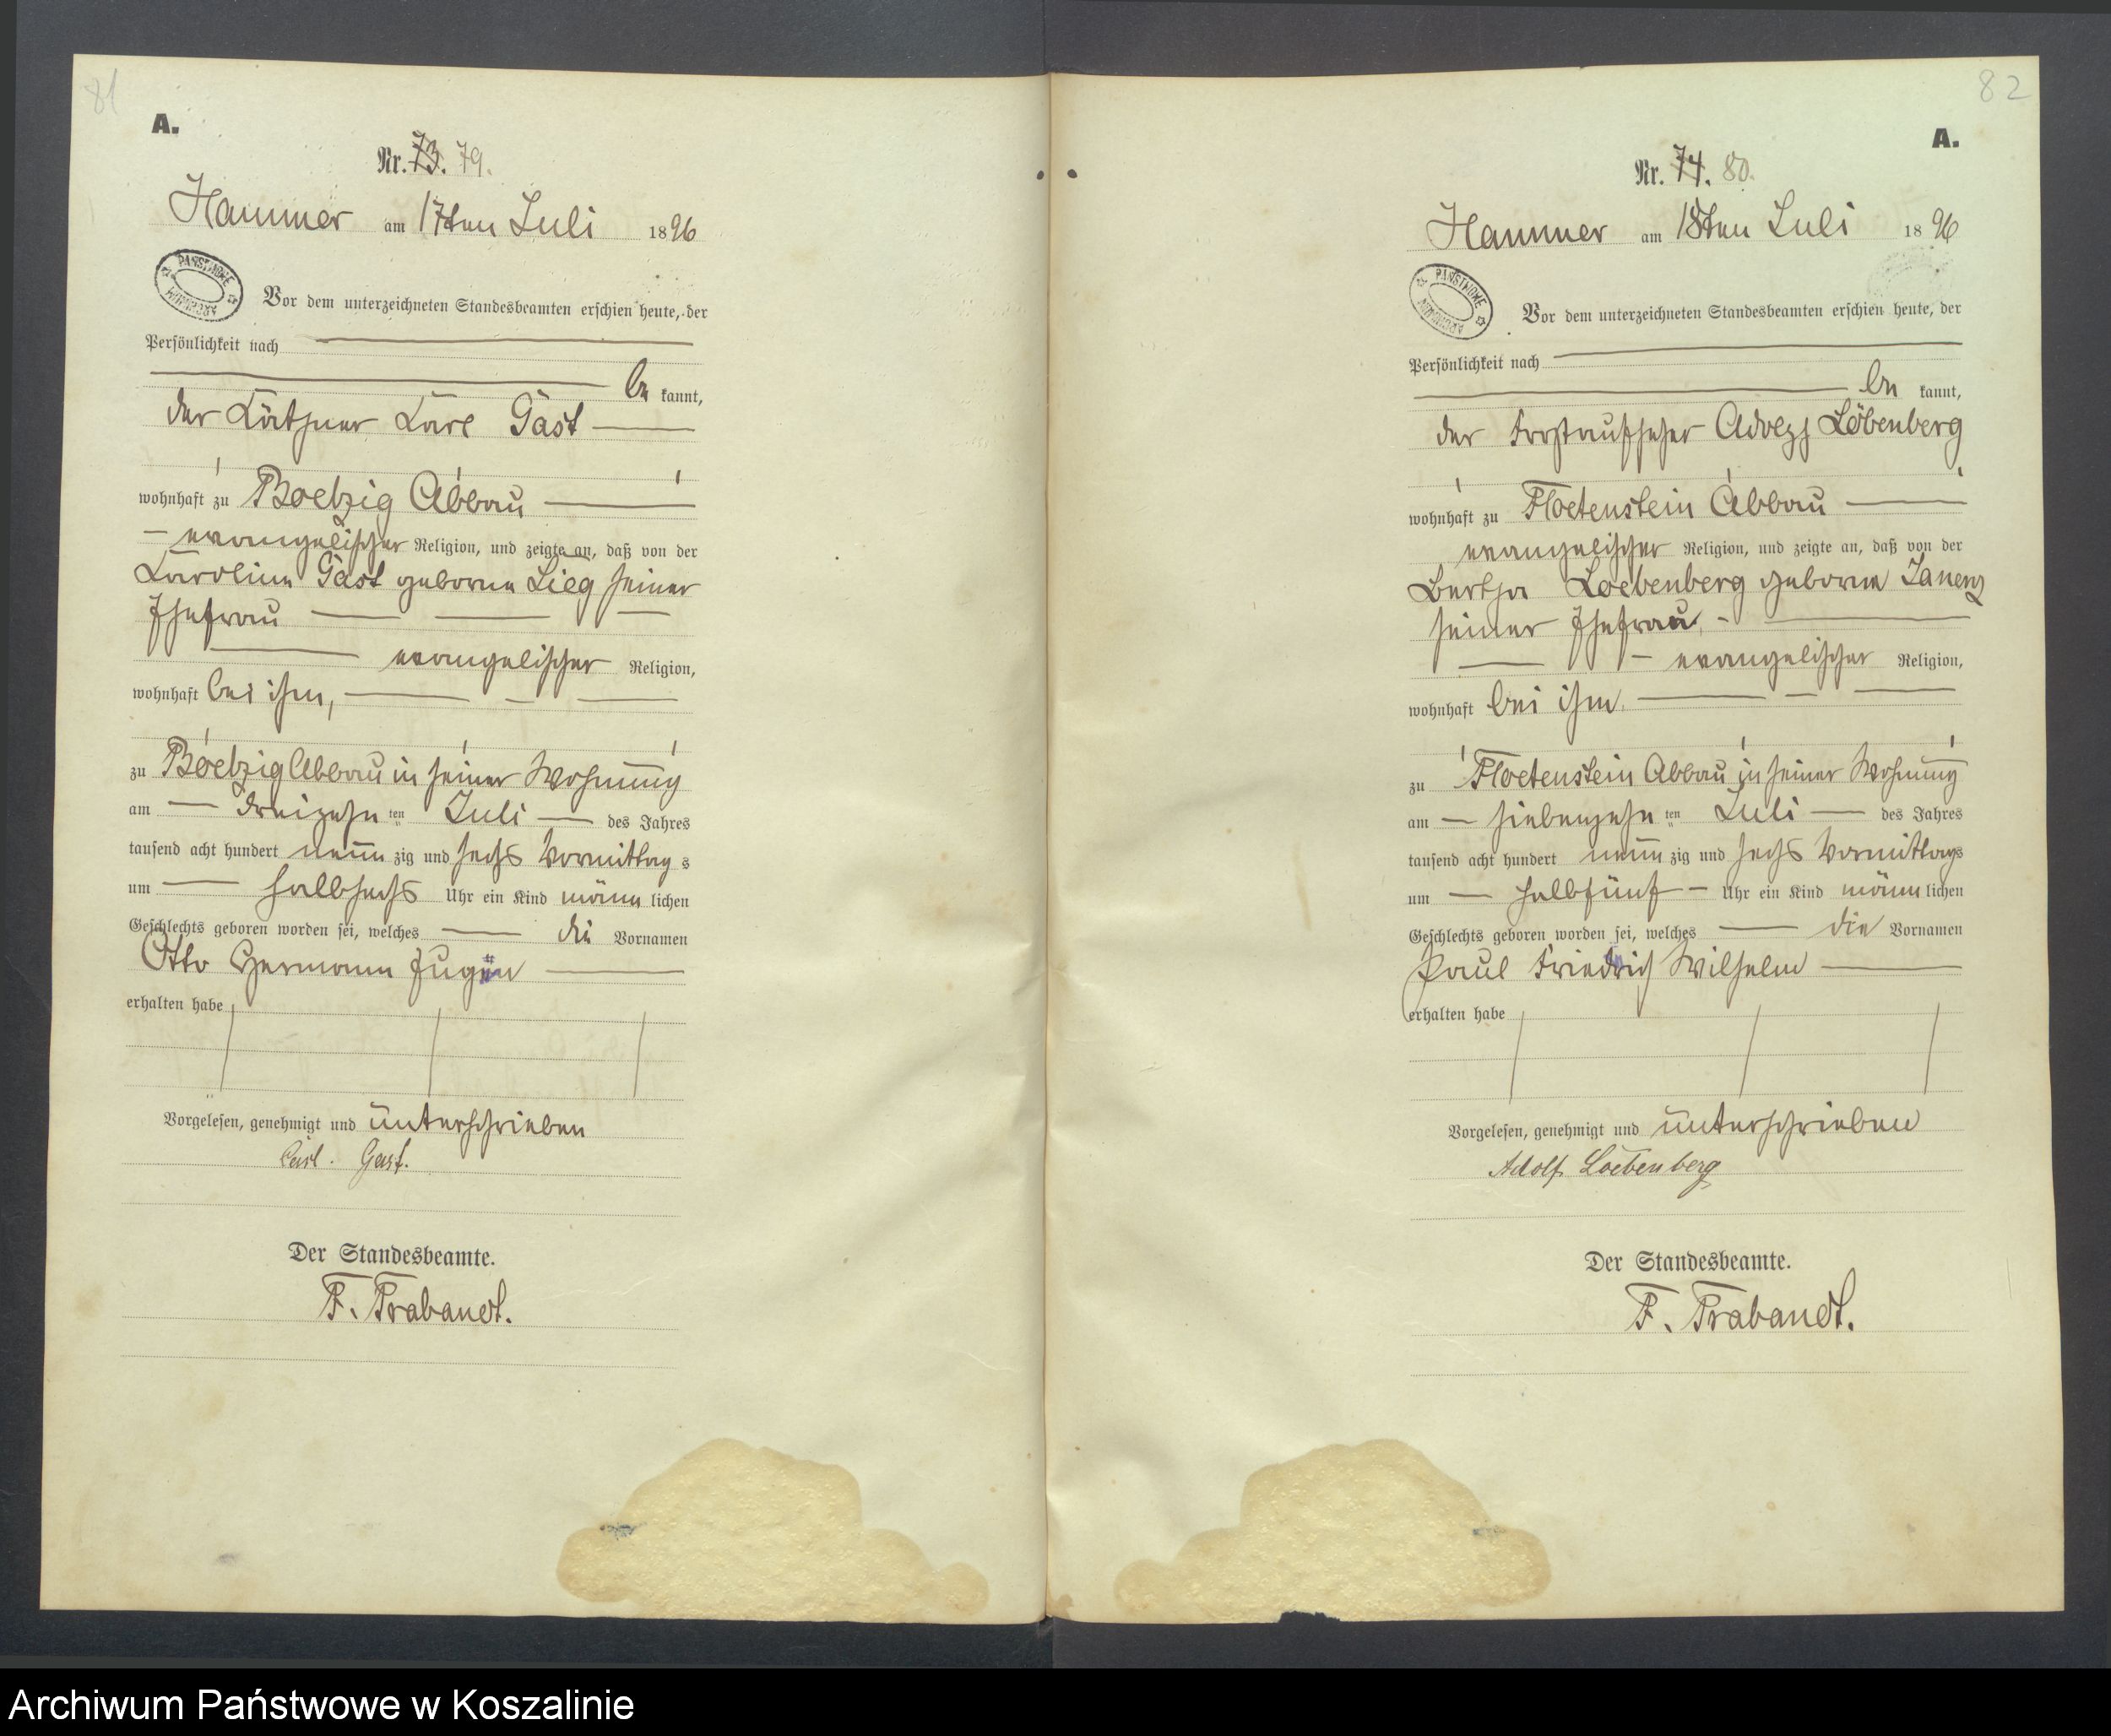 81
A.
Nr. 73. 79.
Hammer am 17ten Juli 1896
PAŃSTWOWE ARCHIWUM
Vor dem unterzeichneten Standesbeamten erschien heute, der
Persönlichkeit nach
be kannt,
der Käthner Karl Gast
wohnhaft zu Boelzig Abbau
evangelischer Religion, und zeigte an, daß von der
Karoline Gast geborne Lieg seiner
Ehefrau
evangelischer Religion,
wohnhaft bei ihm,
zu Boelzig Abbau in seiner Wohnung
am dreizehn ten Juli des Jahres
tausend acht hundert neun zig und sechs Vormittag s
um halb sechs Uhr ein Kind männ lichen
Geschlechts geboren worden sei, welches die Vornamen
Otto Hermann Eugen
erhalten habe
Vorgelesen, genehmigt und unterschrieben
Carl. Gast.
Der Standesbeamte.
F. Prabandt.
82
A.
Nr. 74. 80.
Hammer am 18ten Juli 1896
PAŃSTWOWE ARCHIWUM
Vor dem unterzeichneten Standesbeamten erschien heute, der
Persönlichkeit nach
be kannt,
der Forstaufseher Adolf Löbenberg
wohnhaft zu Floetenstein Abbau
evangelischer Religion, und zeigte an, daß von der
Bertha Loebenberg geborne
seiner Ehefrau,
evangelischer Religion,
wohnhaft bei ihm
zu Floetenstein Abbau in seiner Wohnung
am siebenzehn ten Juli des Jahres
tausend acht hundert neun zig und sechs Vormittags
um halb fünf Uhr ein Kind männ lichen
Geschlechts geboren worden sei, welches die Vornamen
Paul Friedrich Wilhelm
erhalten habe
Vorgelesen, genehmigt und unterschrieben
Adolf Loebenberg
Der Standesbeamte.
F. Prabandt.
Archiwum Państwowe w Koszalinie